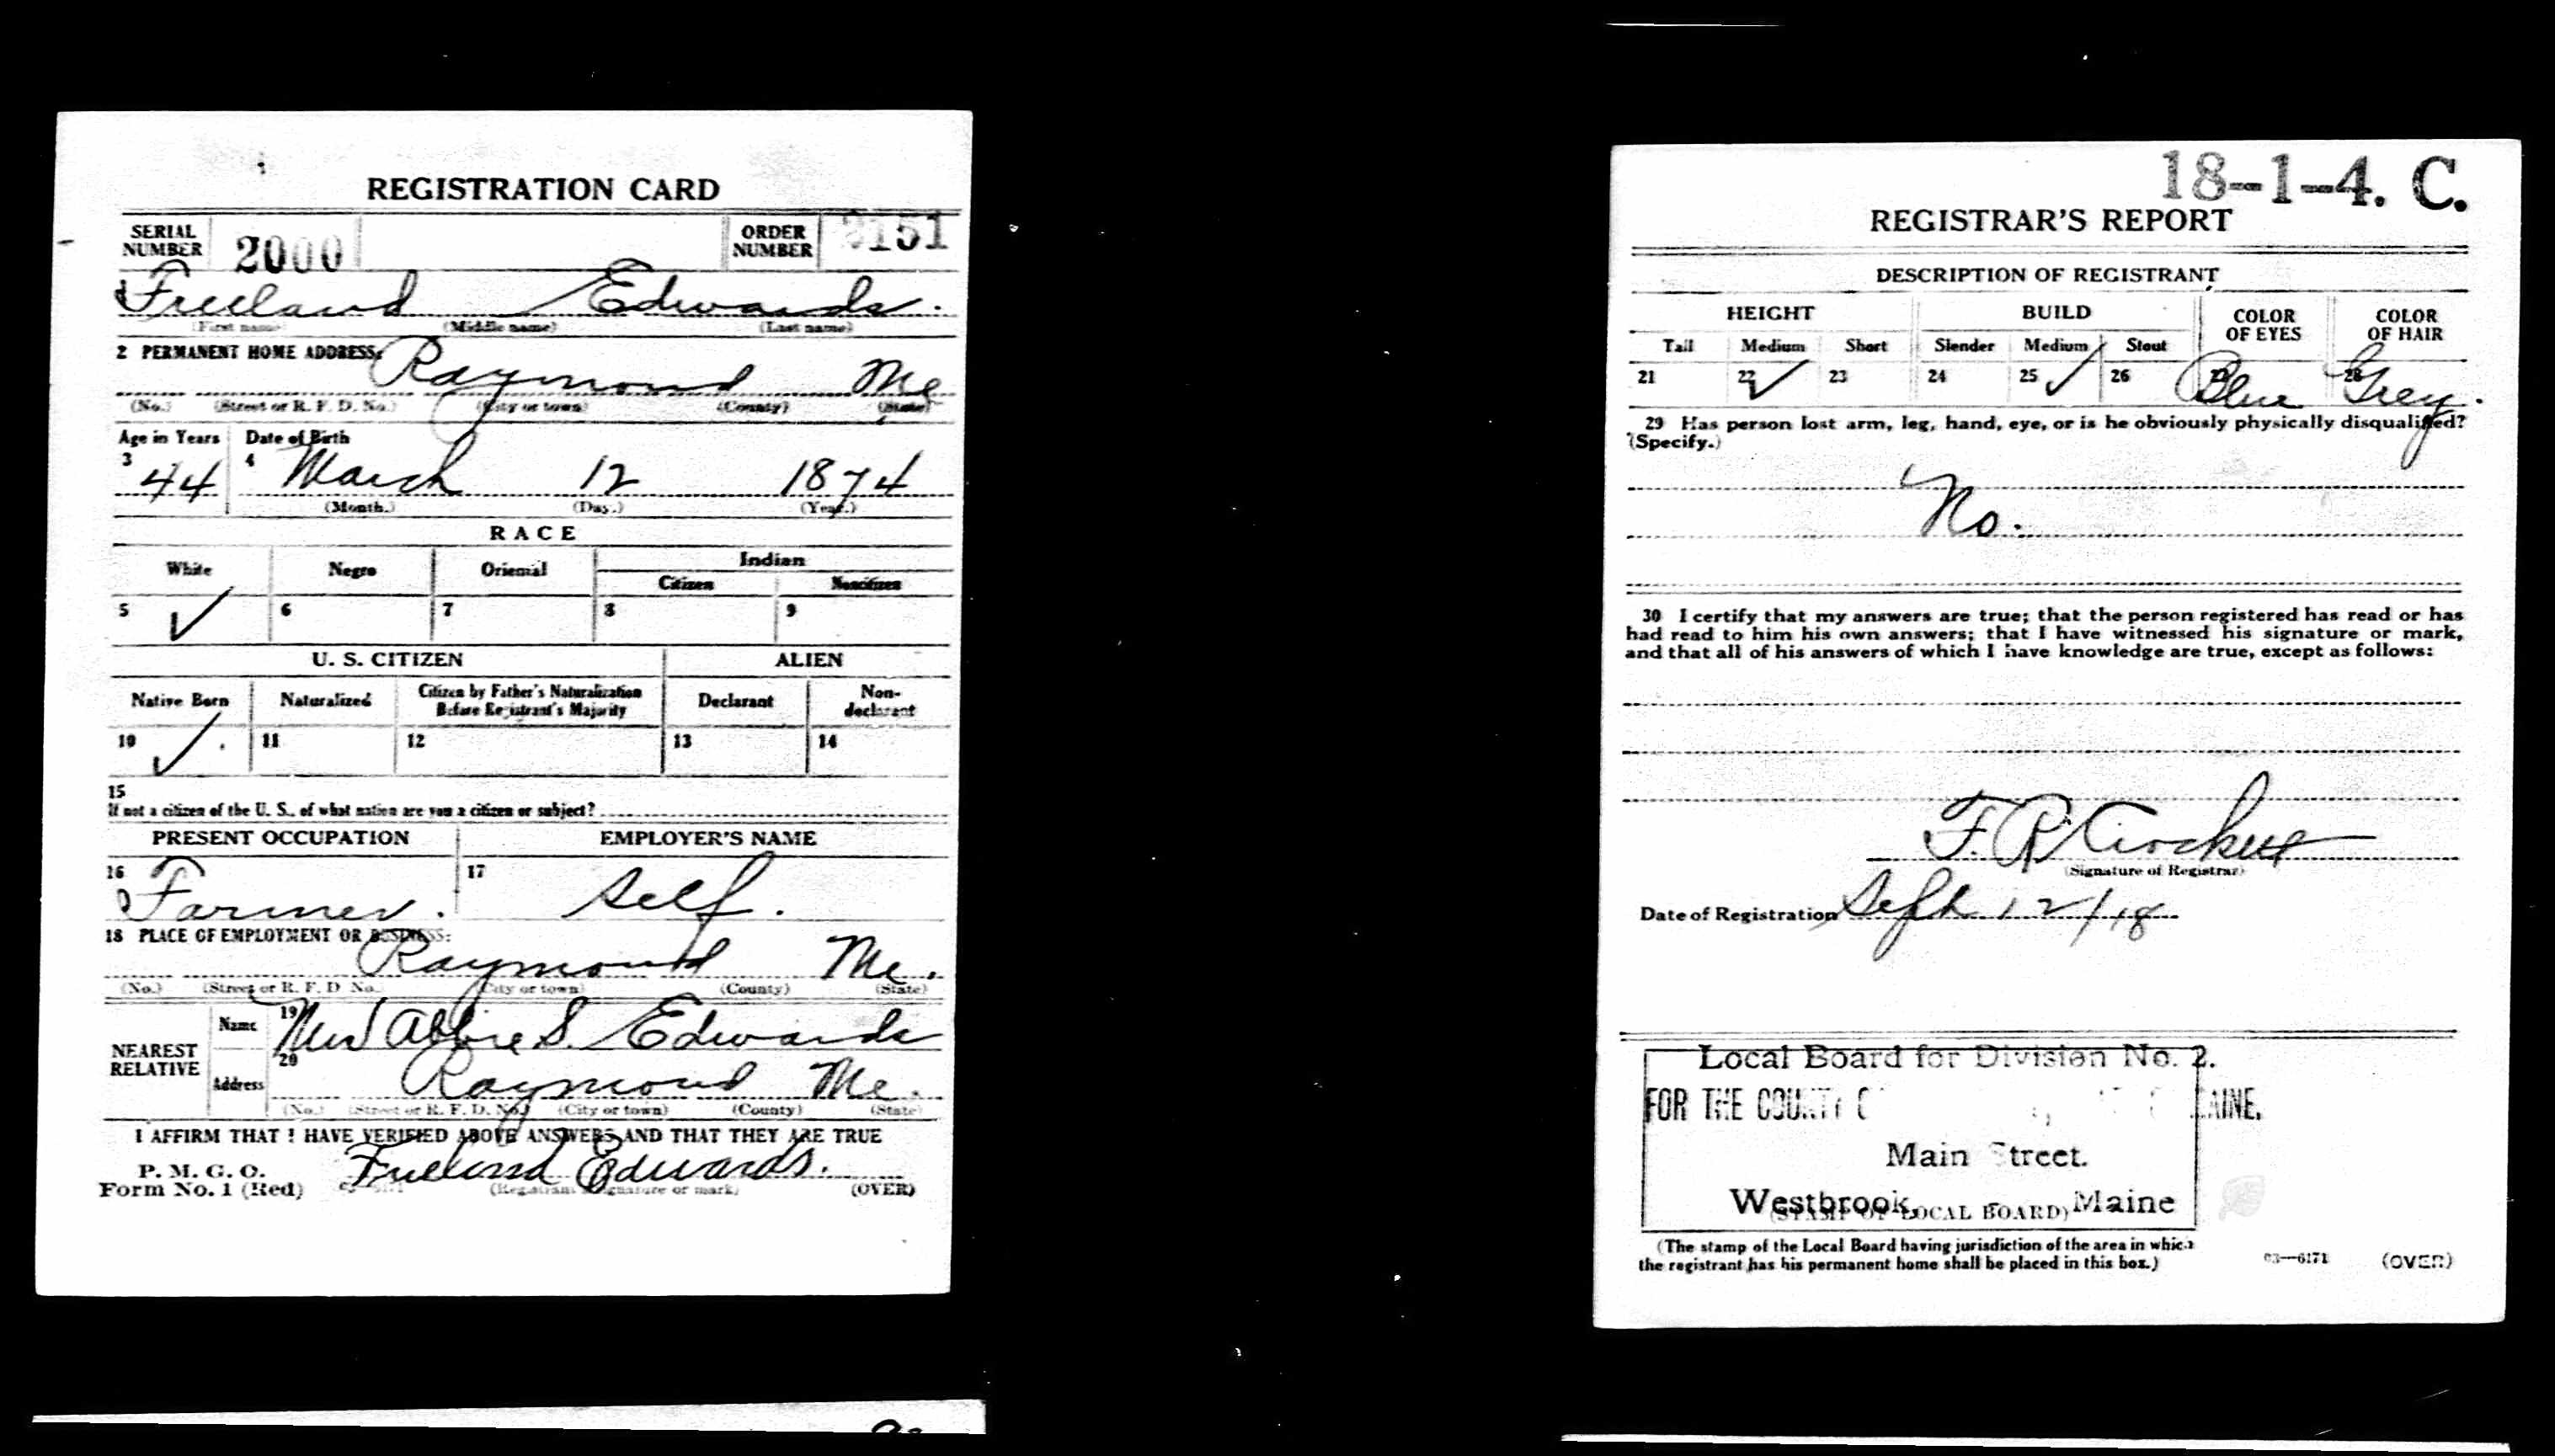 REGISTRATION CARD
SERIAL NUMBER 2000 ORDER NUMBER 2151
Freeland Edwards.
(First name) (Middle name) (Last name)
2 PERMANENT HOME ADDRESS:
Raymond Me
(No.) (Street or R. F. D. No.) (City or town) (County) (State)
Age in Years Date of Birth
3 44 4 March 12 1874
(Month.) (Day.) (Year.)
RACE
White Negro Oriental Indian
Citizen Noncitizen
5 ✓ 6 7 8 9
U. S. CITIZEN ALIEN
Native Born Naturalized Citizen by Father's Naturalization Before Registrant's Majority Declarant Non-declarant
10 ✓ 11 12 13 14
15
If not a citizen of the U. S., of what nation are you a citizen or subject?
PRESENT OCCUPATION EMPLOYER'S NAME
16 Farmer. 17 Self.
18 PLACE OF EMPLOYMENT OR BUSINESS:
Raymond Me.
(No.) (Street or R. F. D No.) (City or town) (County) (State)
NEAREST RELATIVE
Name 19 Mrs Abbie S. Edwards
Address 20 Raymond Me.
(No.) (Street or R. F. D. No.) (City or town) (County) (State)
I AFFIRM THAT I HAVE VERIFIED ABOVE ANSWERS AND THAT THEY ARE TRUE
P. M. G. O.
Form No. 1 (Red) Freeland Edwards.
(Registrant's signature or mark) (OVER)
18-1-4. C.
REGISTRAR'S REPORT
DESCRIPTION OF REGISTRANT
HEIGHT BUILD COLOR OF EYES COLOR OF HAIR
Tall Medium Short Slender Medium Stout
21 22 ✓ 23 24 25 ✓ 26 27 Blue 28 Grey.
29 Has person lost arm, leg, hand, eye, or is he obviously physically disqualified?
(Specify.)
No.
30 I certify that my answers are true; that the person registered has read or has
had read to him his own answers; that I have witnessed his signature or mark,
and that all of his answers of which I have knowledge are true, except as follows:
F. R. Crockett
(Signature of Registrar)
Date of Registration Sept 12/18
Local Board for Division No. 2.
FOR THE COUNTY
Main Street.
Westbrook, - Maine
(STAMP OF LOCAL BOARD)
(The stamp of the Local Board having jurisdiction of the area in which
the registrant has his permanent home shall be placed in this box.)
03—6171 (OVER)